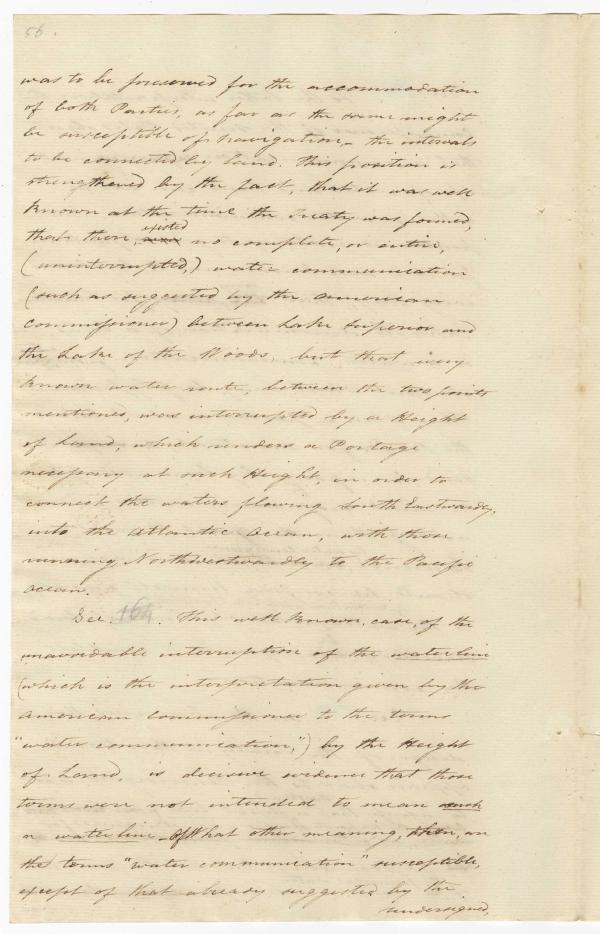 56.
was to be preserved for the accommodation
of both Parties, as far as the same might
be susceptible of navigation, – the intervals
to be connected by land. This position is
strengthened by the fact, that it was well
known at the time the Treaty was formed,
that there, existed no complete, or entire,
(uninterrupted,) water communication
(such as suggested by the American
Commissioner) between Lake Superior and
the Lake of the Woods, but that every
known water route, between the two points
mentioned, was interrupted by a Height
of Land, which renders a Portage
necessary at such Height, in order to
connect the waters flowing South Eastwardly,
into the Atlantic Ocean, with those
running Northwestwardly to the Pacific
Ocean.
Sec. 164. This well known, case, of the
unavoidable interruption of the water line
(which is the interpretation given by the
American Commissioner to the terms
"water communication,") by the Height
of Land, is decisive evidence that those
terms were not intended to mean such
a water line. – Of What other meaning, then, are
the terms "water communication" susceptible,
except of that already suggested by the
undersigned,